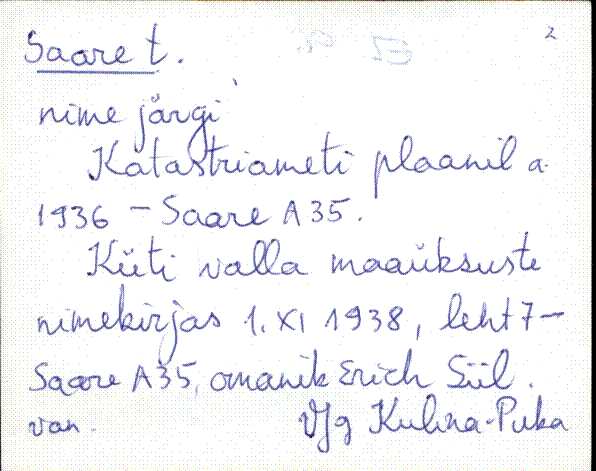 2
Saare t.
nime järgi
Katastriameti plaanil a.
1936 – Saare A35.
Küti valla maaüksuste
nimekirjas 1. XI 1938, leht 7 –
Saare A35, omanik Erich Siil.
van. VJg Kulina-Puka